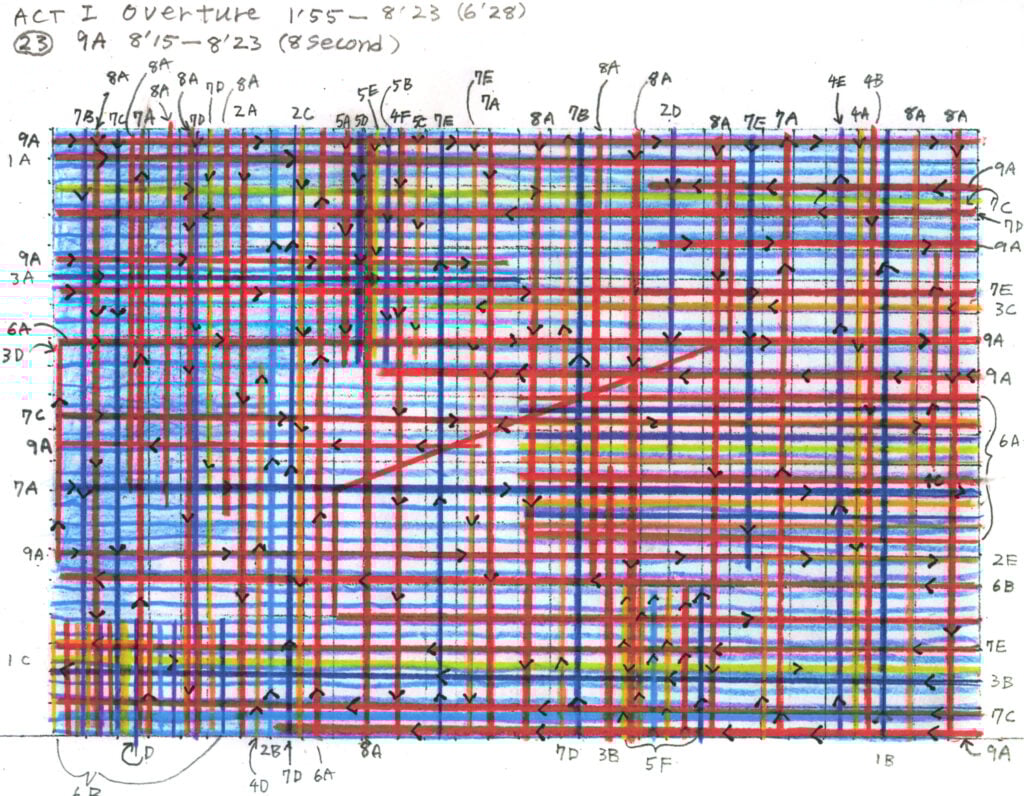 ACT I Overture 1'55 — 8'23 (6'28)
㉓ 9A 8'15 — 8'23 (8 second)
8A 8A 8A 8A 7D 8A 5E 5B 7E 8A 8A 4E 4B
7B 7C 7A 7D 2A 2C 5A 5D 4F 5C 7E 7A 8A 7B 2D 8A 7E 7A 4A 8A 8A
9A
1A
9A
7C
7D
9A
9A
3A
7E
3C
6A
9A
3D
9A
7C
6A
9A
7A
9A
2E
6B
7E
1C
3B
7C
D 2B 7D 6A 8A 7D 3B 5F 1B 9A
6B 4D